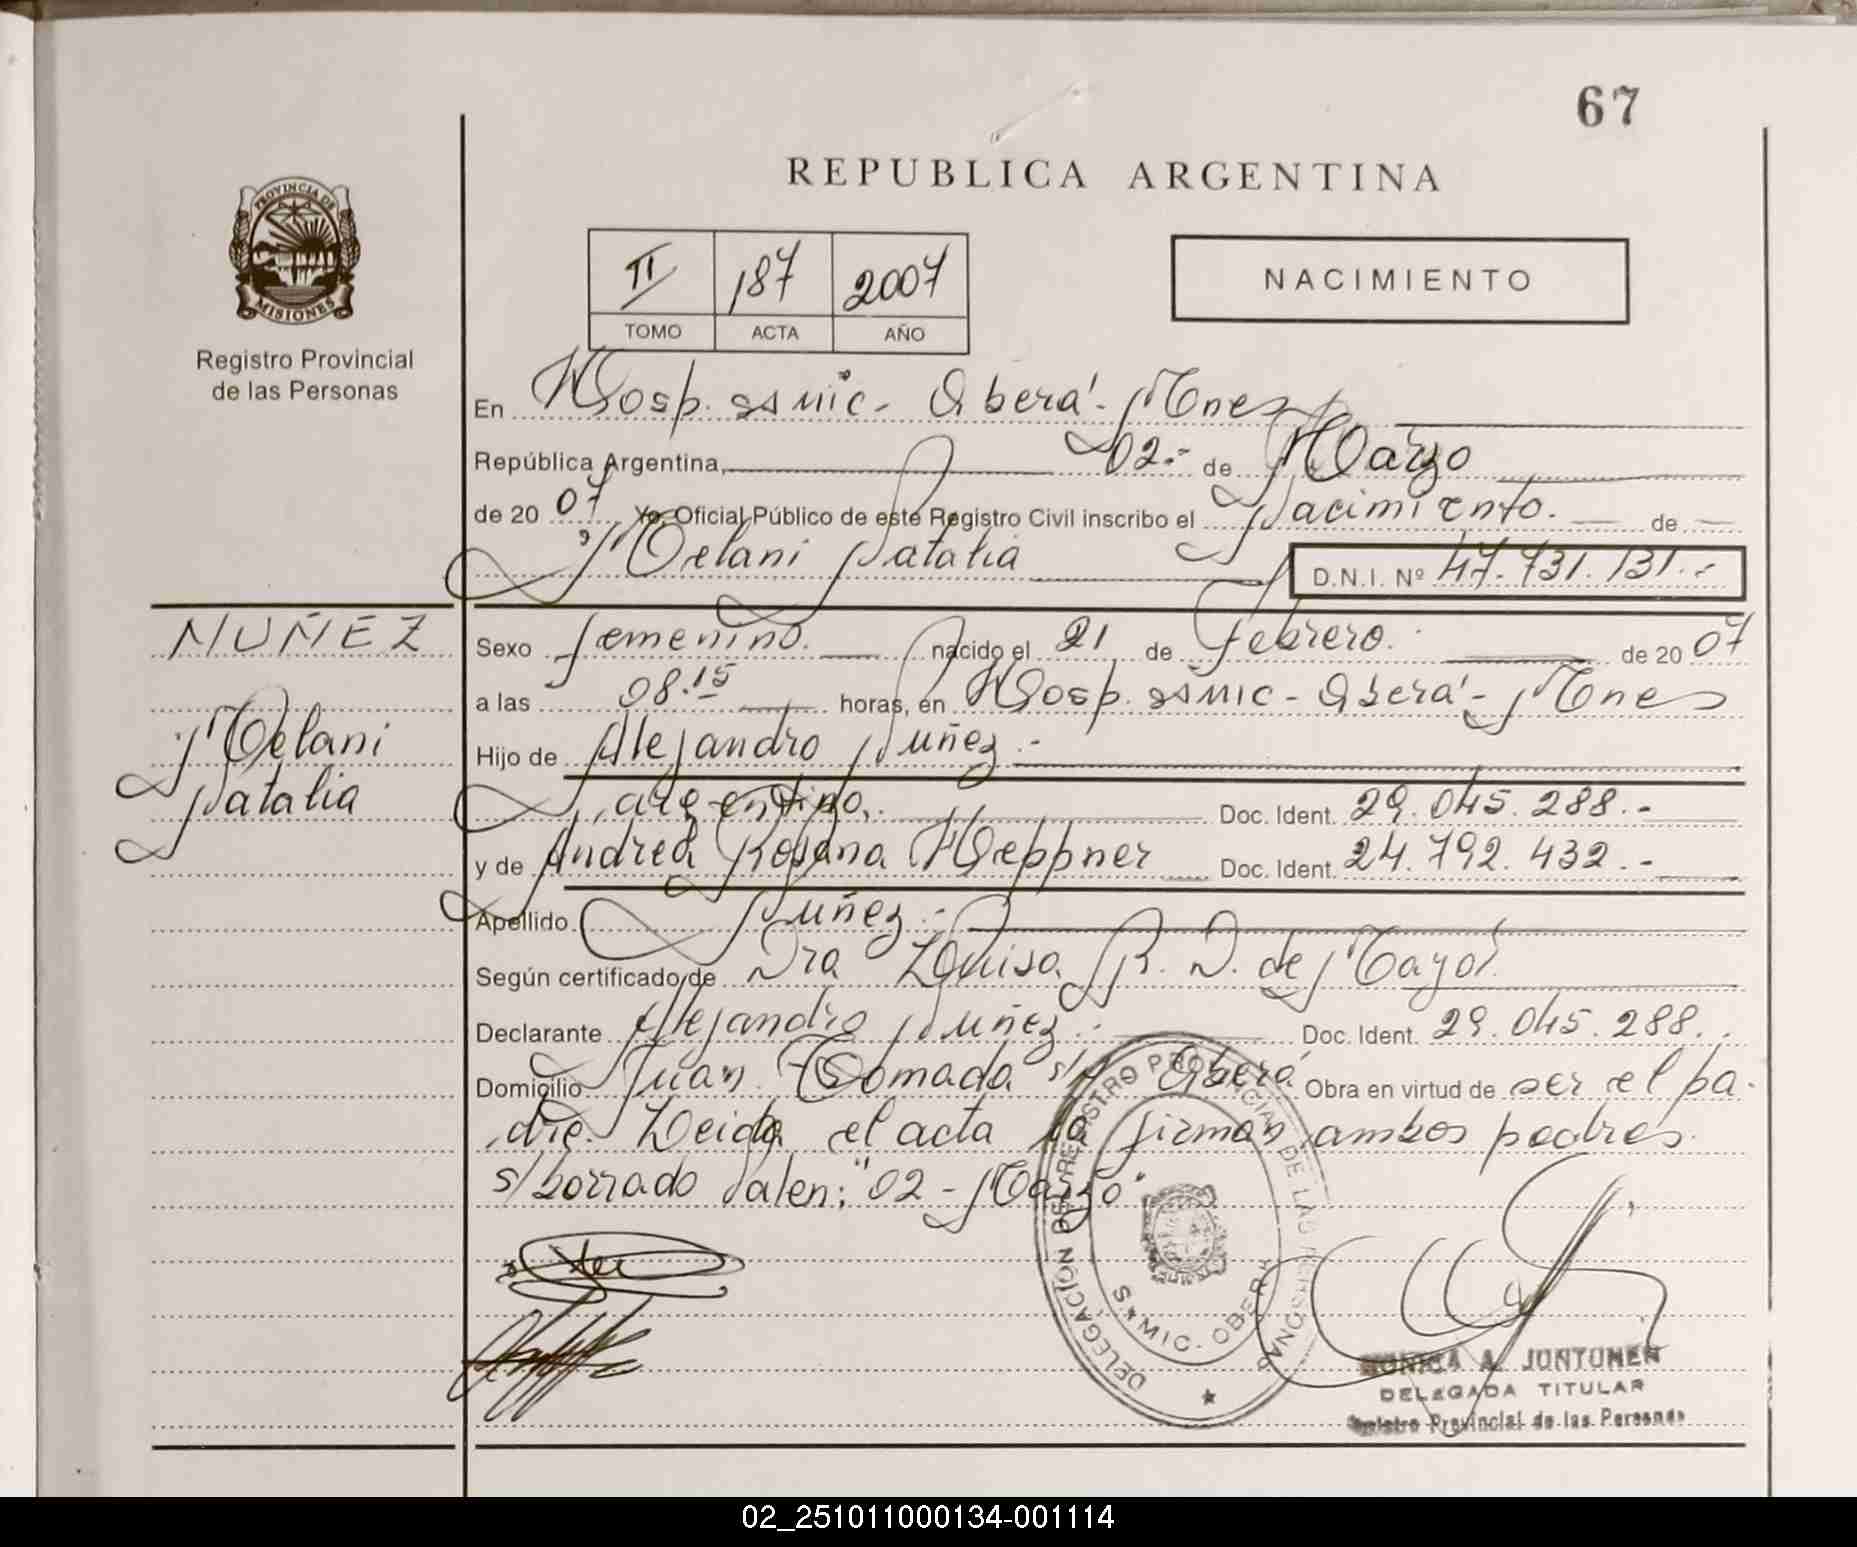 67
REPUBLICA ARGENTINA
PROVINCIA DE
MISIONES
Registro Provincial
de las Personas
II 187 2007
TOMO ACTA AÑO
NACIMIENTO
En Hosp. SAMIC - Oberá - Mnes
República Argentina, 02.- de Marzo
de 20 07, Yo, Oficial Público de este Registro Civil inscribo el Nacimiento. de
Melani Natalia D.N.I. Nº 47.731.131.-
NUÑEZ
Melani
Natalia
Sexo femenino. nacido el 21 de Febrero. de 20 07
a las 08.15 horas, en Hosp. SAMIC - Oberá - Mnes
Hijo de Alejandro Nuñez.-
argentino. Doc. Ident. 29.045.288.-
y de Andrea Rosana Heppner Doc. Ident. 24.792.432.-
Apellido Nuñez.-
Según certificado de Dra Luisa R. D. de Mayol
Declarante Alejandro Nuñez.- Doc. Ident. 29.045.288.
Domicilio Juan Tomada s/n Oberá Obra en virtud de ser el pa-
dre. Leida el acta la firman ambos padres.
s/borrado Valen: "02 - Marzo"
DELEGACION DEL REGISTRO PROVINCIAL DE LAS PERSONAS
SAMIC - OBERA
MONICA A. JUNTUNEN
DELEGADA TITULAR
Registro Provincial de las Personas
02_251011000134-001114